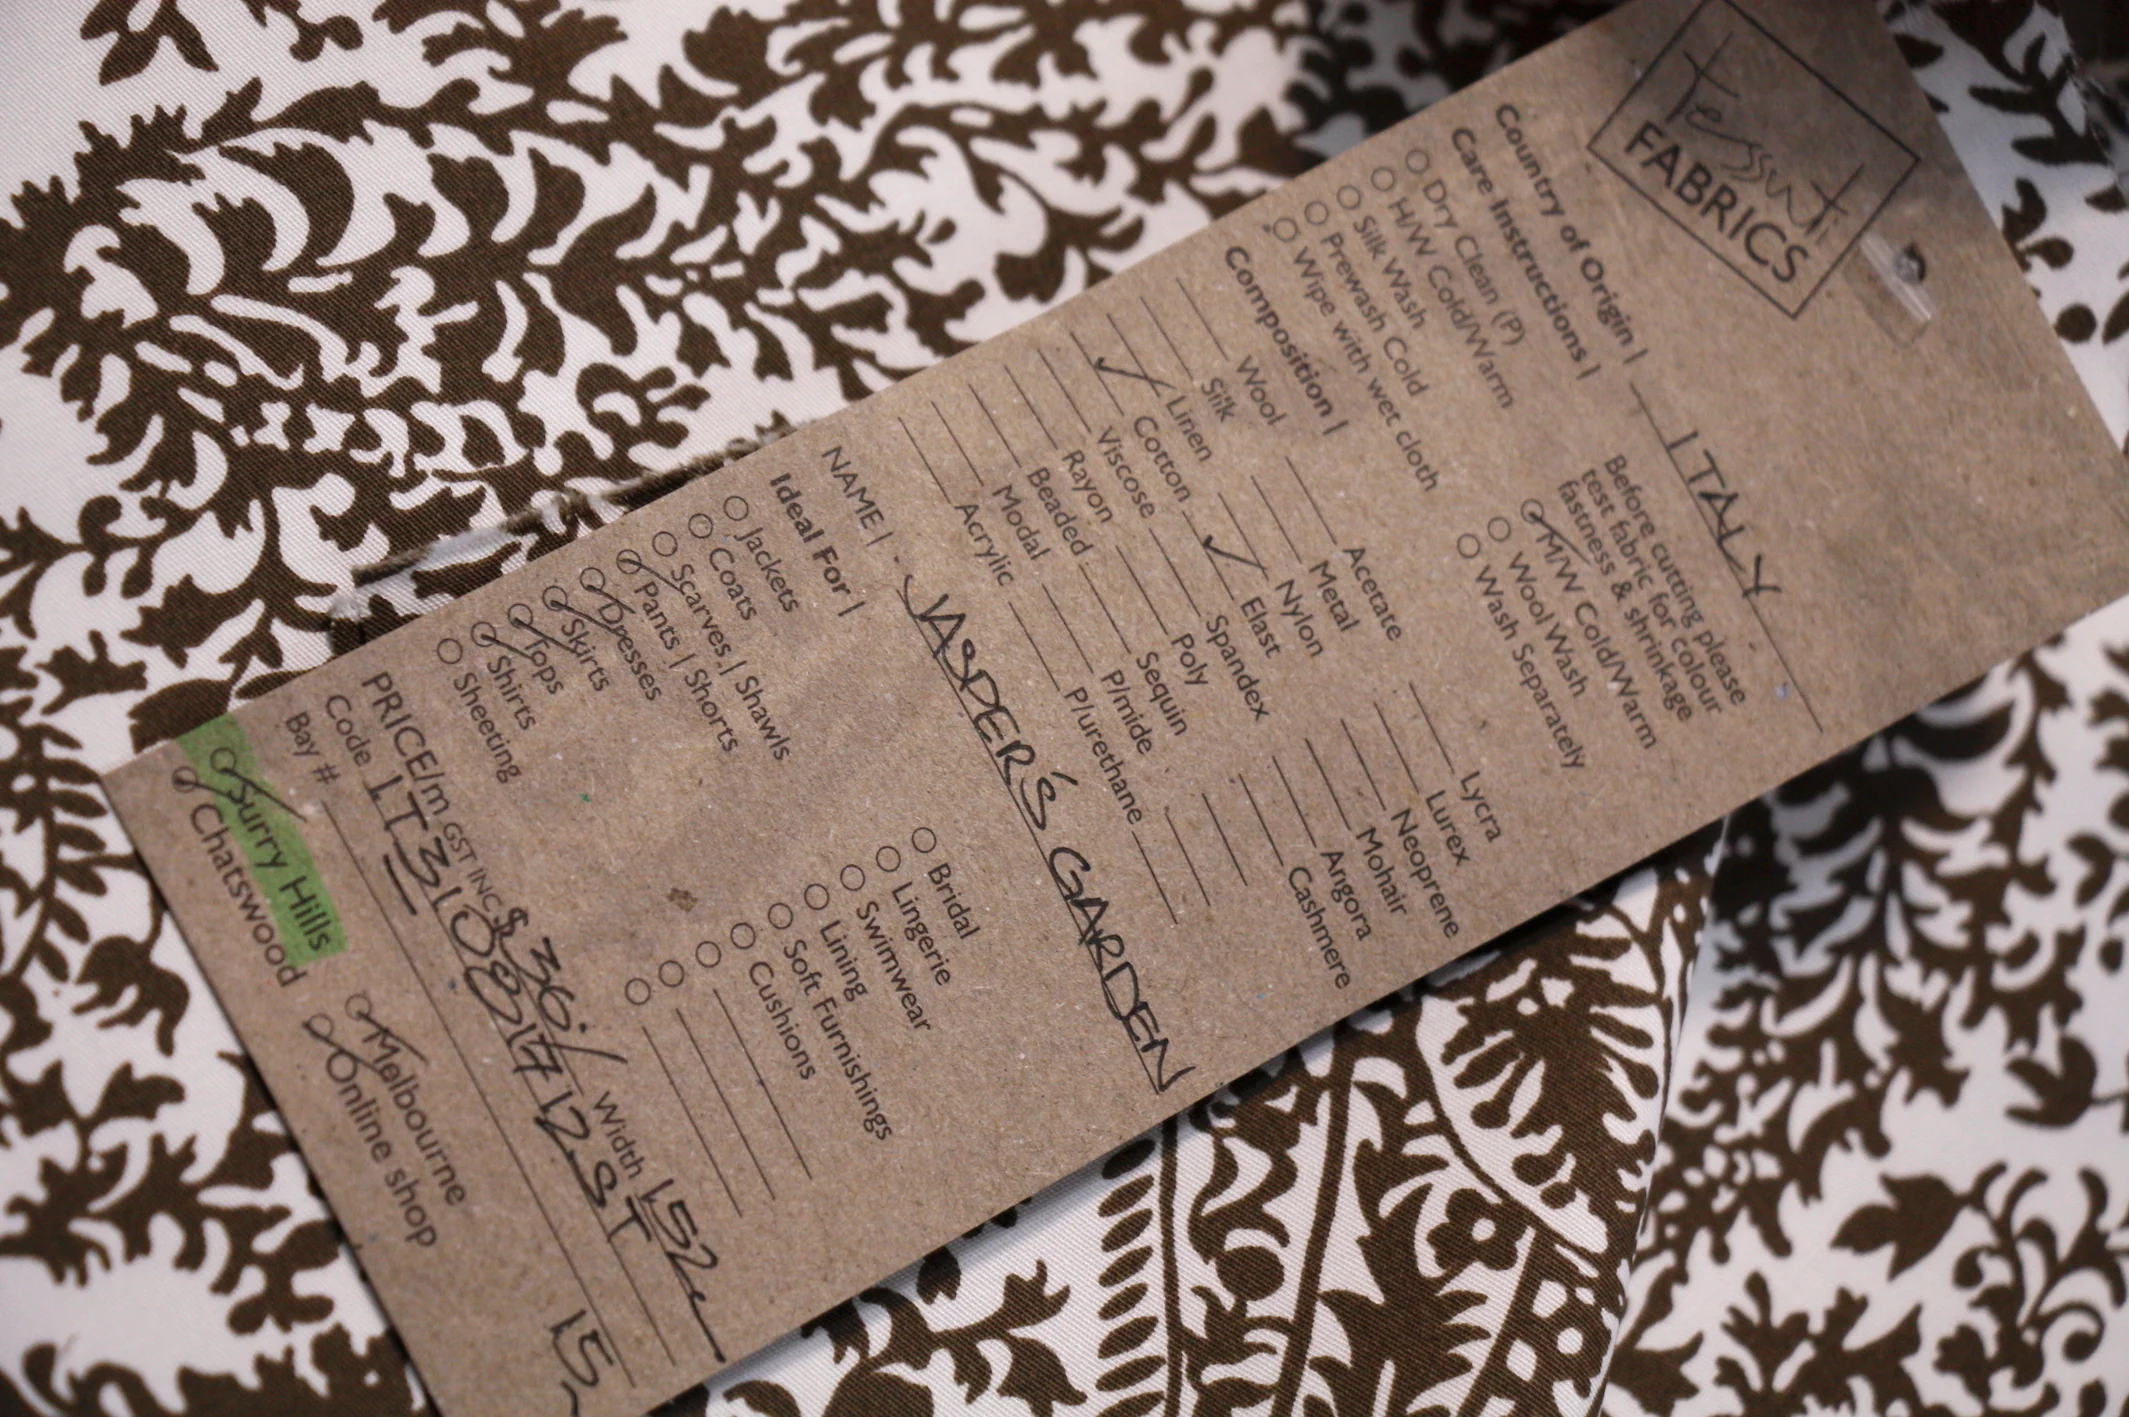 Tessuti
FABRICS
Country of Origin | ITALY
Care Instructions |
Before cutting please
test fabric for colour
fastness & shrinkage
Dry Clean (P)
H/W Cold/Warm
Silk Wash
Prewash Cold
Wipe with wet cloth
M/W Cold/Warm
Wool Wash
Wash Separately
Composition |
Wool
Silk
Linen
Cotton
Viscose
Rayon
Beaded
Modal
Acrylic
Acetate
Metal
Nylon
Elast
Spandex
Poly
Sequin
P/mide
P/urethane
Lycra
Lurex
Neoprene
Mohair
Angora
Cashmere
NAME | JASPER'S GARDEN
Ideal For |
Jackets
Coats
Scarves | Shawls
Pants | Shorts
Dresses
Skirts
Tops
Shirts
Sheeting
Bridal
Lingerie
Swimwear
Lining
Soft Furnishings
Cushions
PRICE/m GST INC $36/ Width 152
Code IT31081712ST
Bay # 15
Surry Hills
Chatswood
Melbourne
Online shop